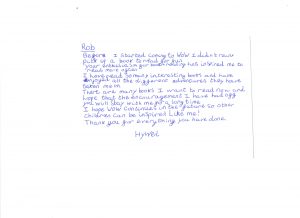 Rob
Before I started coming to WOW I didn't even
pick up a book to read for fun.
Your enthusiasm for reading has inspired me to
read more often.
I have read so many interesting books and have
enjoyed all the different adventures they have
taken me on
There are many books I want to read now and
hope that the encouragement I have had off
you will stay with me for a long time.
I hope WOW continues in the future so other
children can be inspired like me!
Thank you for everything you have done.
Hywel